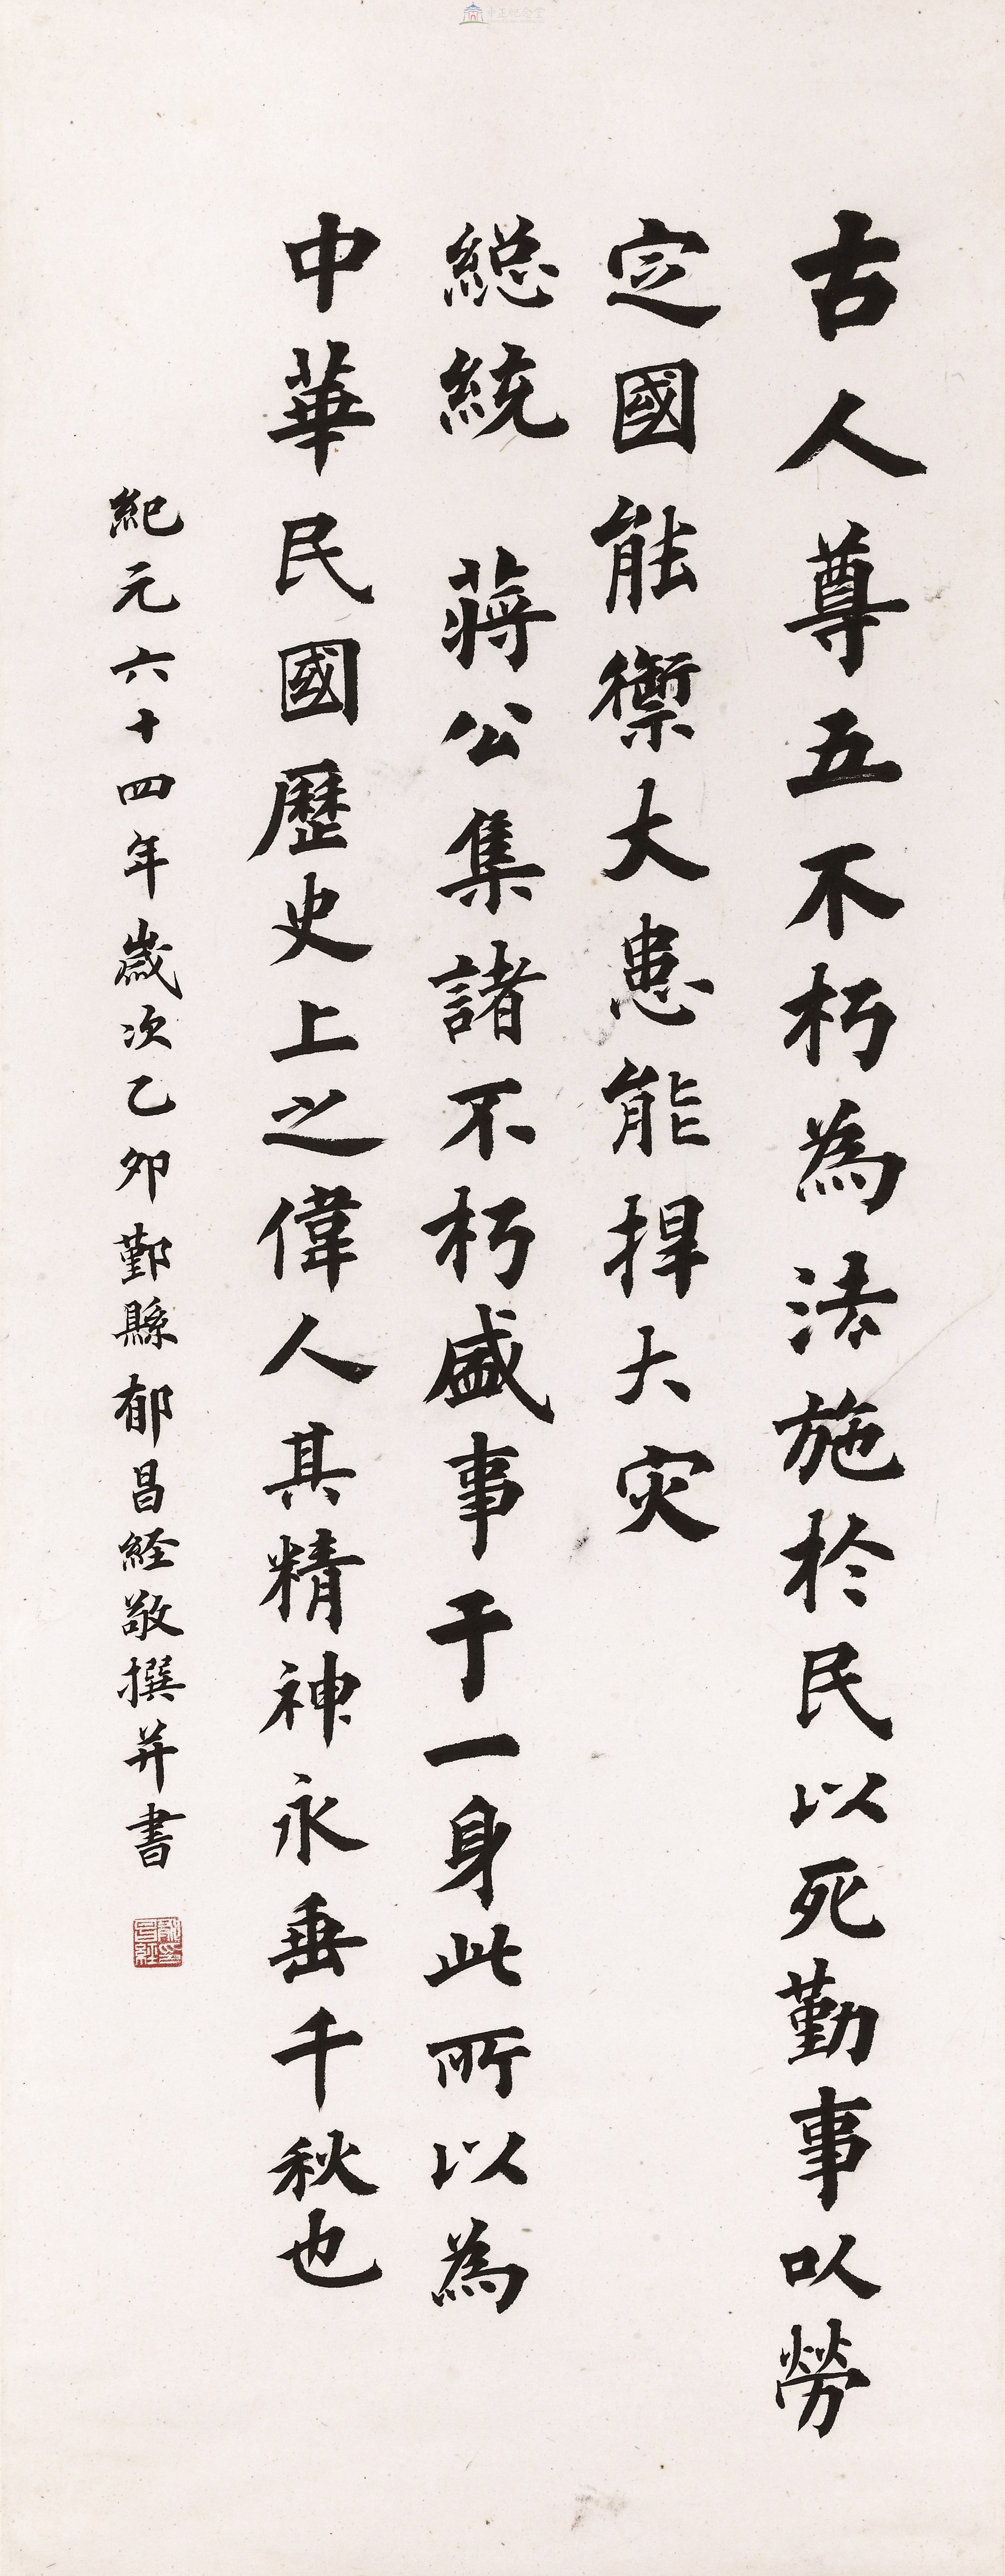 中正紀念堂
古人尊五不朽為法施於民以死勤事以勞
定國能禦大患能捍大灾
総統　蔣公集諸不朽盛事于一身此所以為
中華民國歷史上之偉人其精神永垂千秋也
紀元六十四年歲次乙卯鄞縣郁昌経敬撰并書